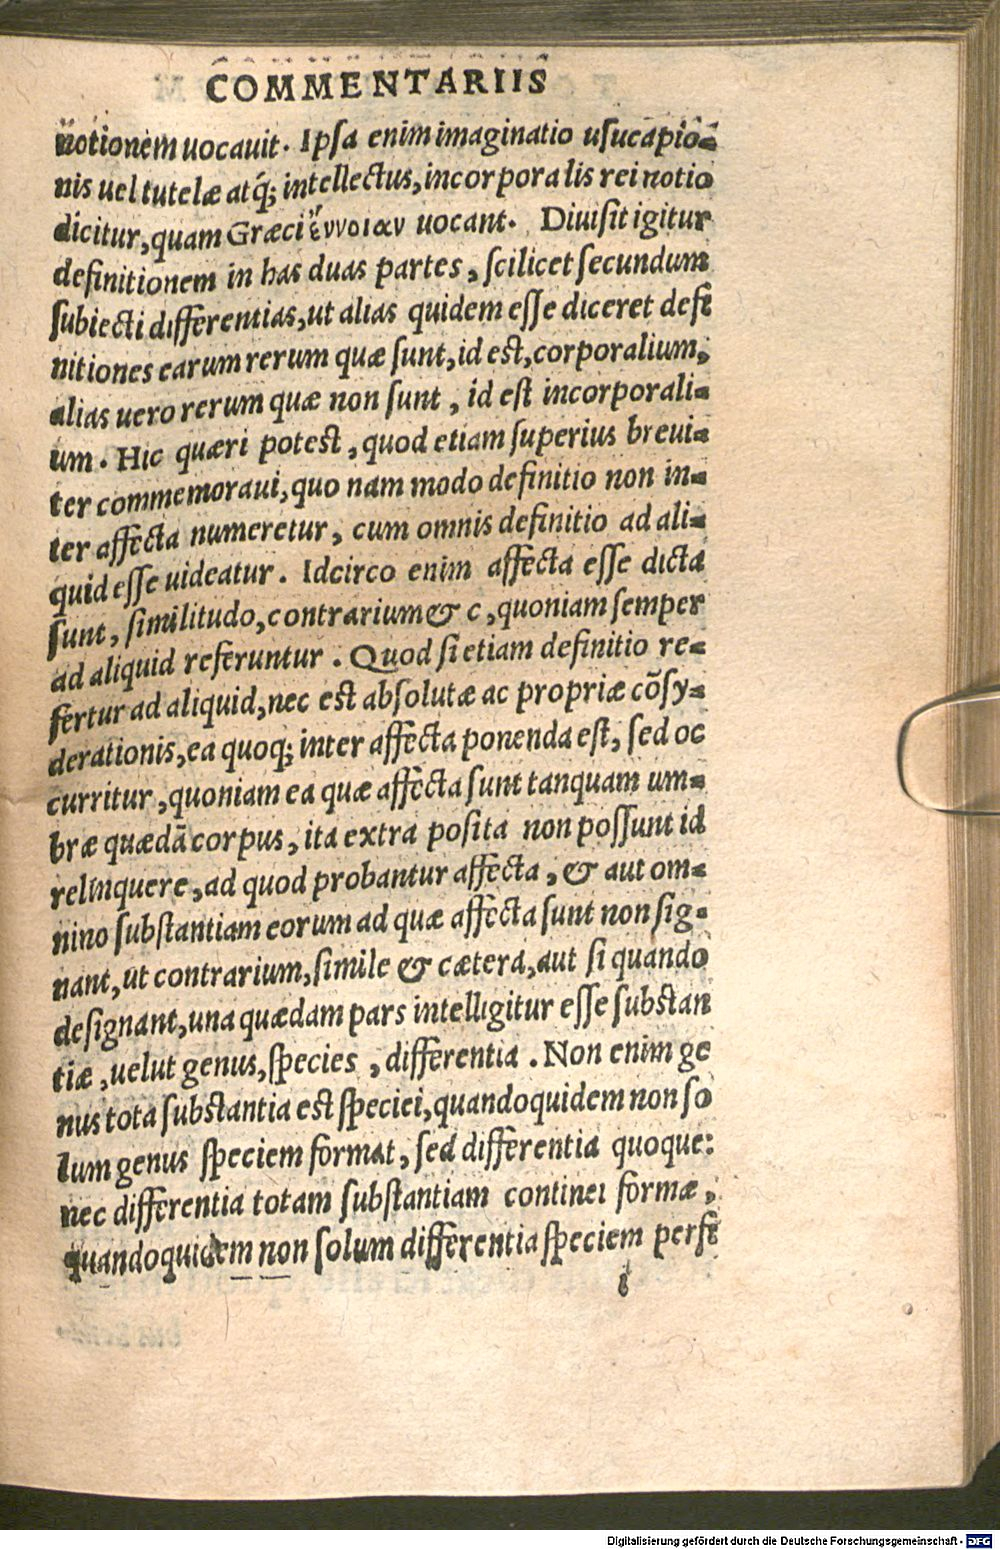 COMMENTARIIS
notionem uocauit. Ipsa enim imaginatio usucapio-
nis uel tutelæ atq́; intellectus, incorporalis rei notio
dicitur, quam Græci ἔννοιαν uocant. Diuisit igitur
definitionem in has duas partes, scilicet secundum
subiecti differentias, ut alias quidem esse diceret defi
nitiones earum rerum quæ sunt, id est, corporalium,
alias uero rerum quæ non sunt, id est incorporali-
um. Hic quæri potest, quod etiam superius breui-
ter commemoraui, quo nam modo definitio non in-
ter affecta numeretur, cum omnis definitio ad ali-
quid esse uideatur. Idcirco enim affecta esse dicta
sunt, similitudo, contrarium & c, quoniam semper
ad aliquid referuntur. Quod si etiam definitio re-
fertur ad aliquid, nec est absolutæ ac propriæ cõsy-
derationis, ea quoq; inter affecta ponenda est, sed oc
curritur, quoniam ea quæ affecta sunt tanquam um-
bræ quædã corpus, ita extra posita non possunt id
relinquere, ad quod probantur affecta, & aut om-
nino substantiam eorum ad quæ affecta sunt non sig-
nant, ut contrarium, simile & cætera, aut si quando
designant, una quædam pars intelligitur esse substan
tiæ, uelut genus, species, differentia. Non enim ge
nus tota substantia est speciei, quandoquidem non so
lum genus speciem format, sed differentia quoque:
nec differentia totam substantiam continet formæ,
quandoquidem non solum differentia speciem perfi
l
Digitalisierung gefördert durch die Deutsche Forschungsgemeinschaft - DFG